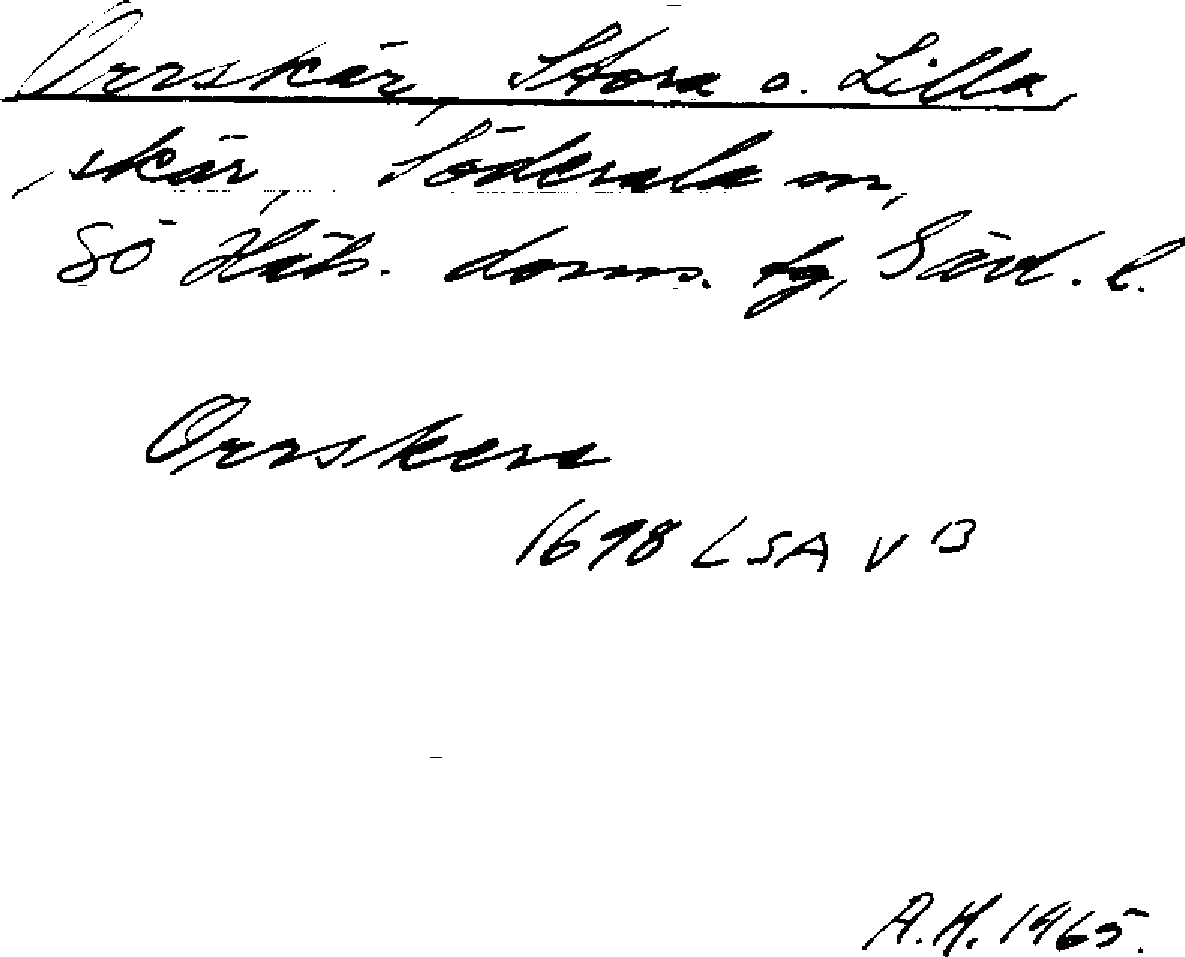 Orrskär, Stora o. Lilla,
skär, Söderala sn,
SÖ Häls. doms. tg, Gävl. l.
Orrskera
1698 LSA V 13
A.H. 1965.